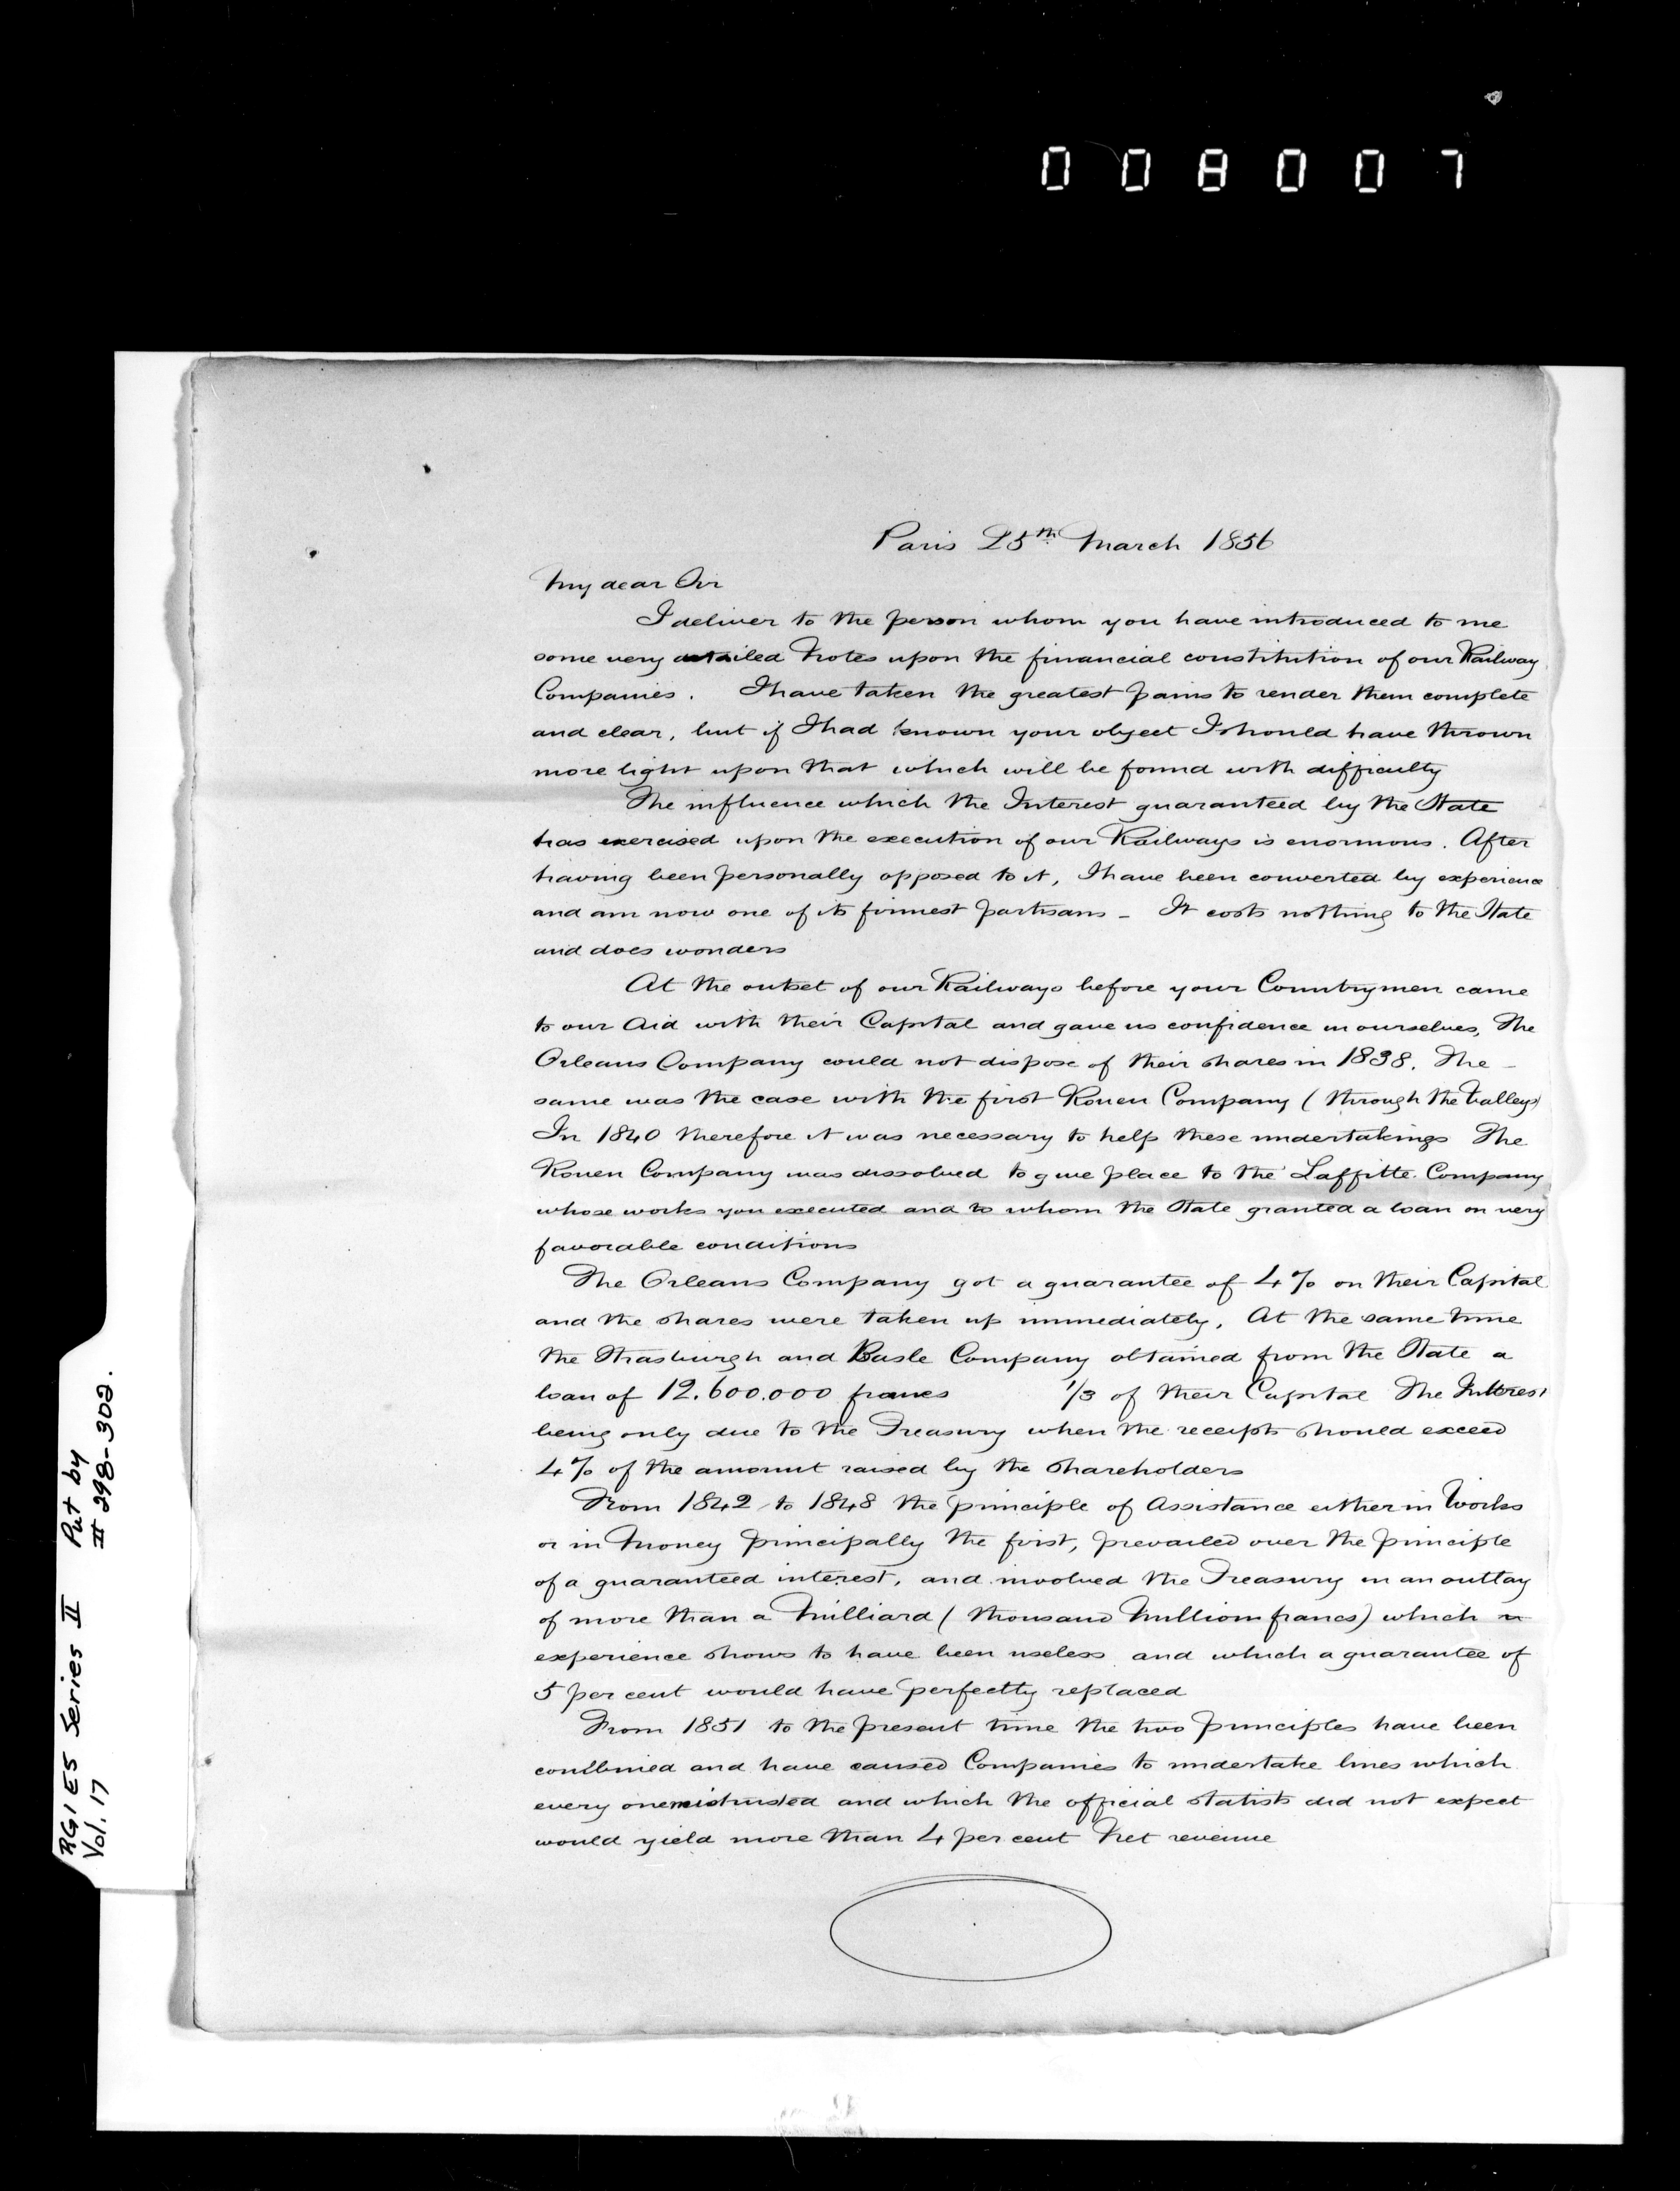 008007
Paris 25th March 1856
My dear Sir
I deliver to the person whom you have introduced to me
some very detailed Notes upon the financial constitution of our Railway
Companies. I have taken the greatest pains to render them complete
and clear, but if I had known your object I should have thrown
more light upon that which will be found with difficulty
The influence which the Interest guaranteed by the State
has exercised upon the execution of our Railways is enormous. After
having been personally opposed to it, I have been converted by experience
and am now one of its firmest partisans - It costs nothing to the State
and does wonders
At the outset of our Railways before your Countrymen came
to our Aid with their Capital and gave us confidence in ourselves, The
Orleans Company could not dispose of their shares in 1838. The -
same was the case with the first Rouen Company (through the Valleys)
In 1840 therefore it was necessary to help these undertakings The
Rouen Company was dissolved to give place to the Laffitte Company
whose works you executed and to whom the State granted a loan on very
favorable conditions
The Orleans Company got a guarantee of 4% on their Capital
and the shares were taken up immediately. At the same time
the Strasburgh and Basle Company obtained from the State a
loan of 12.600.000 francs 1/3 of their Capital The Interest
being only due to the Treasury when the receipts should exceed
4% of the amount raised by the Shareholders
From 1842 to 1848 the principle of Assistance either in Works
or in Money principally the first, prevailed over the principle
of a guaranteed interest, and involved the Treasury in an outlay
of more than a Milliard (thousand Million francs) which
experience shows to have been useless and which a guarantee of
5 per cent would have perfectly replaced
From 1851 to the present time the two principles have been
combined and have caused Companies to undertake lines which
every one mistrusted and which the official statists did not expect
would yield more than 4 per cent Net revenue
RG1 E5 Series II Put by
Vol. 17 II 298-302.